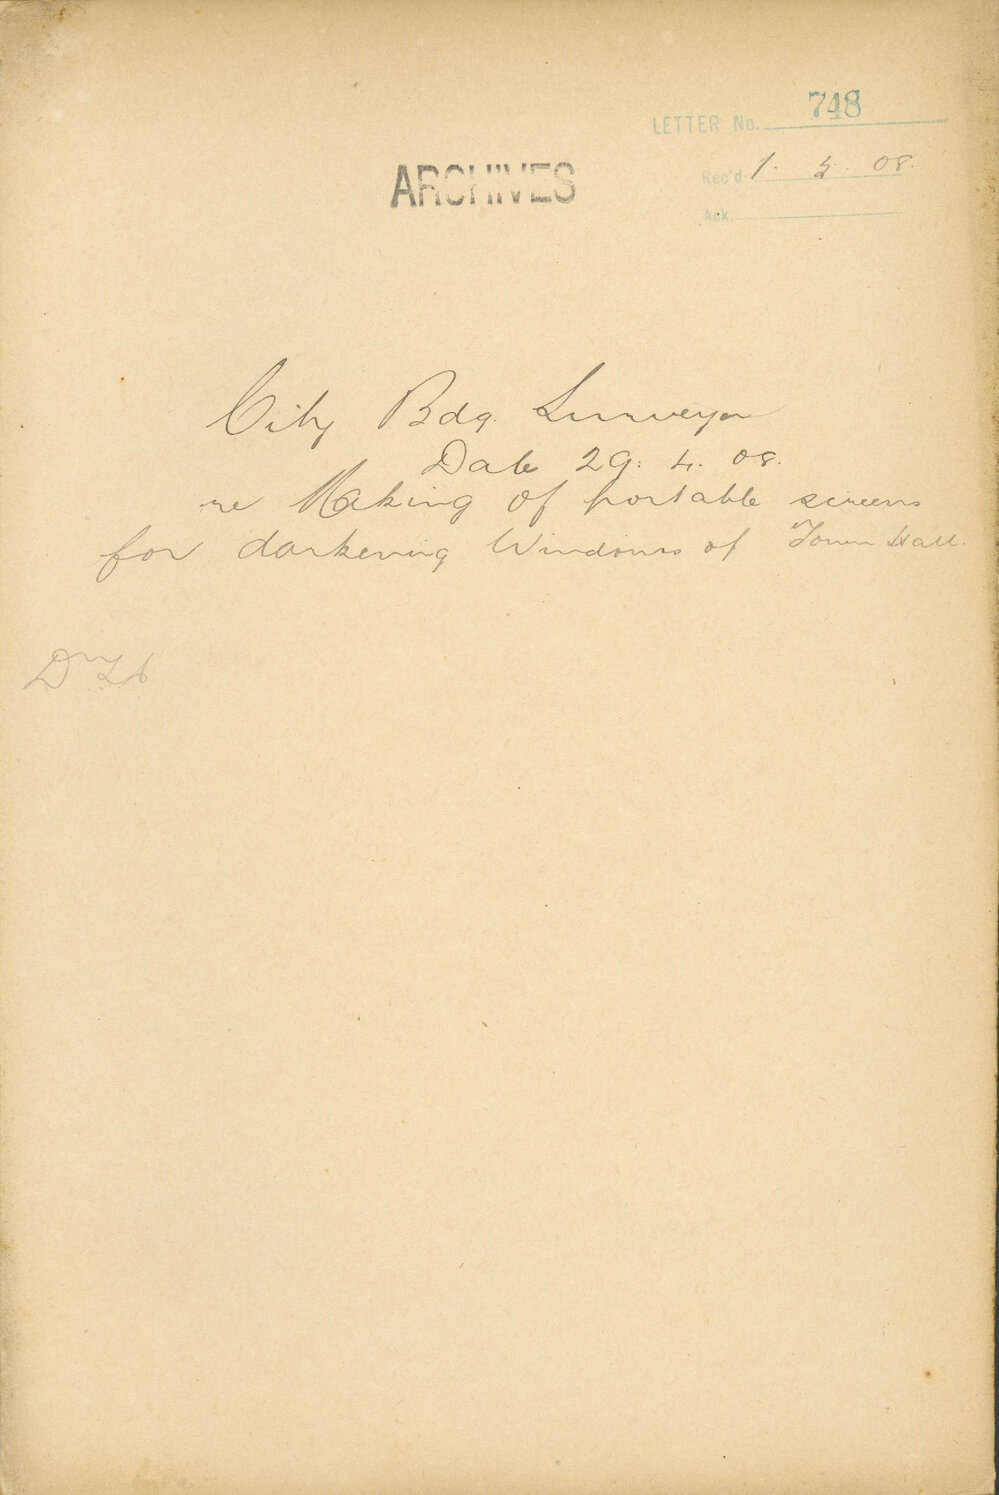 LETTER No. 748
ARCHIVES
Rec'd 1. 5. 08.
Ack.
City Bdg. Surveyor
Date 29. 4. 08.
re Making of portable screens
for darkening Windows of Town Hall.